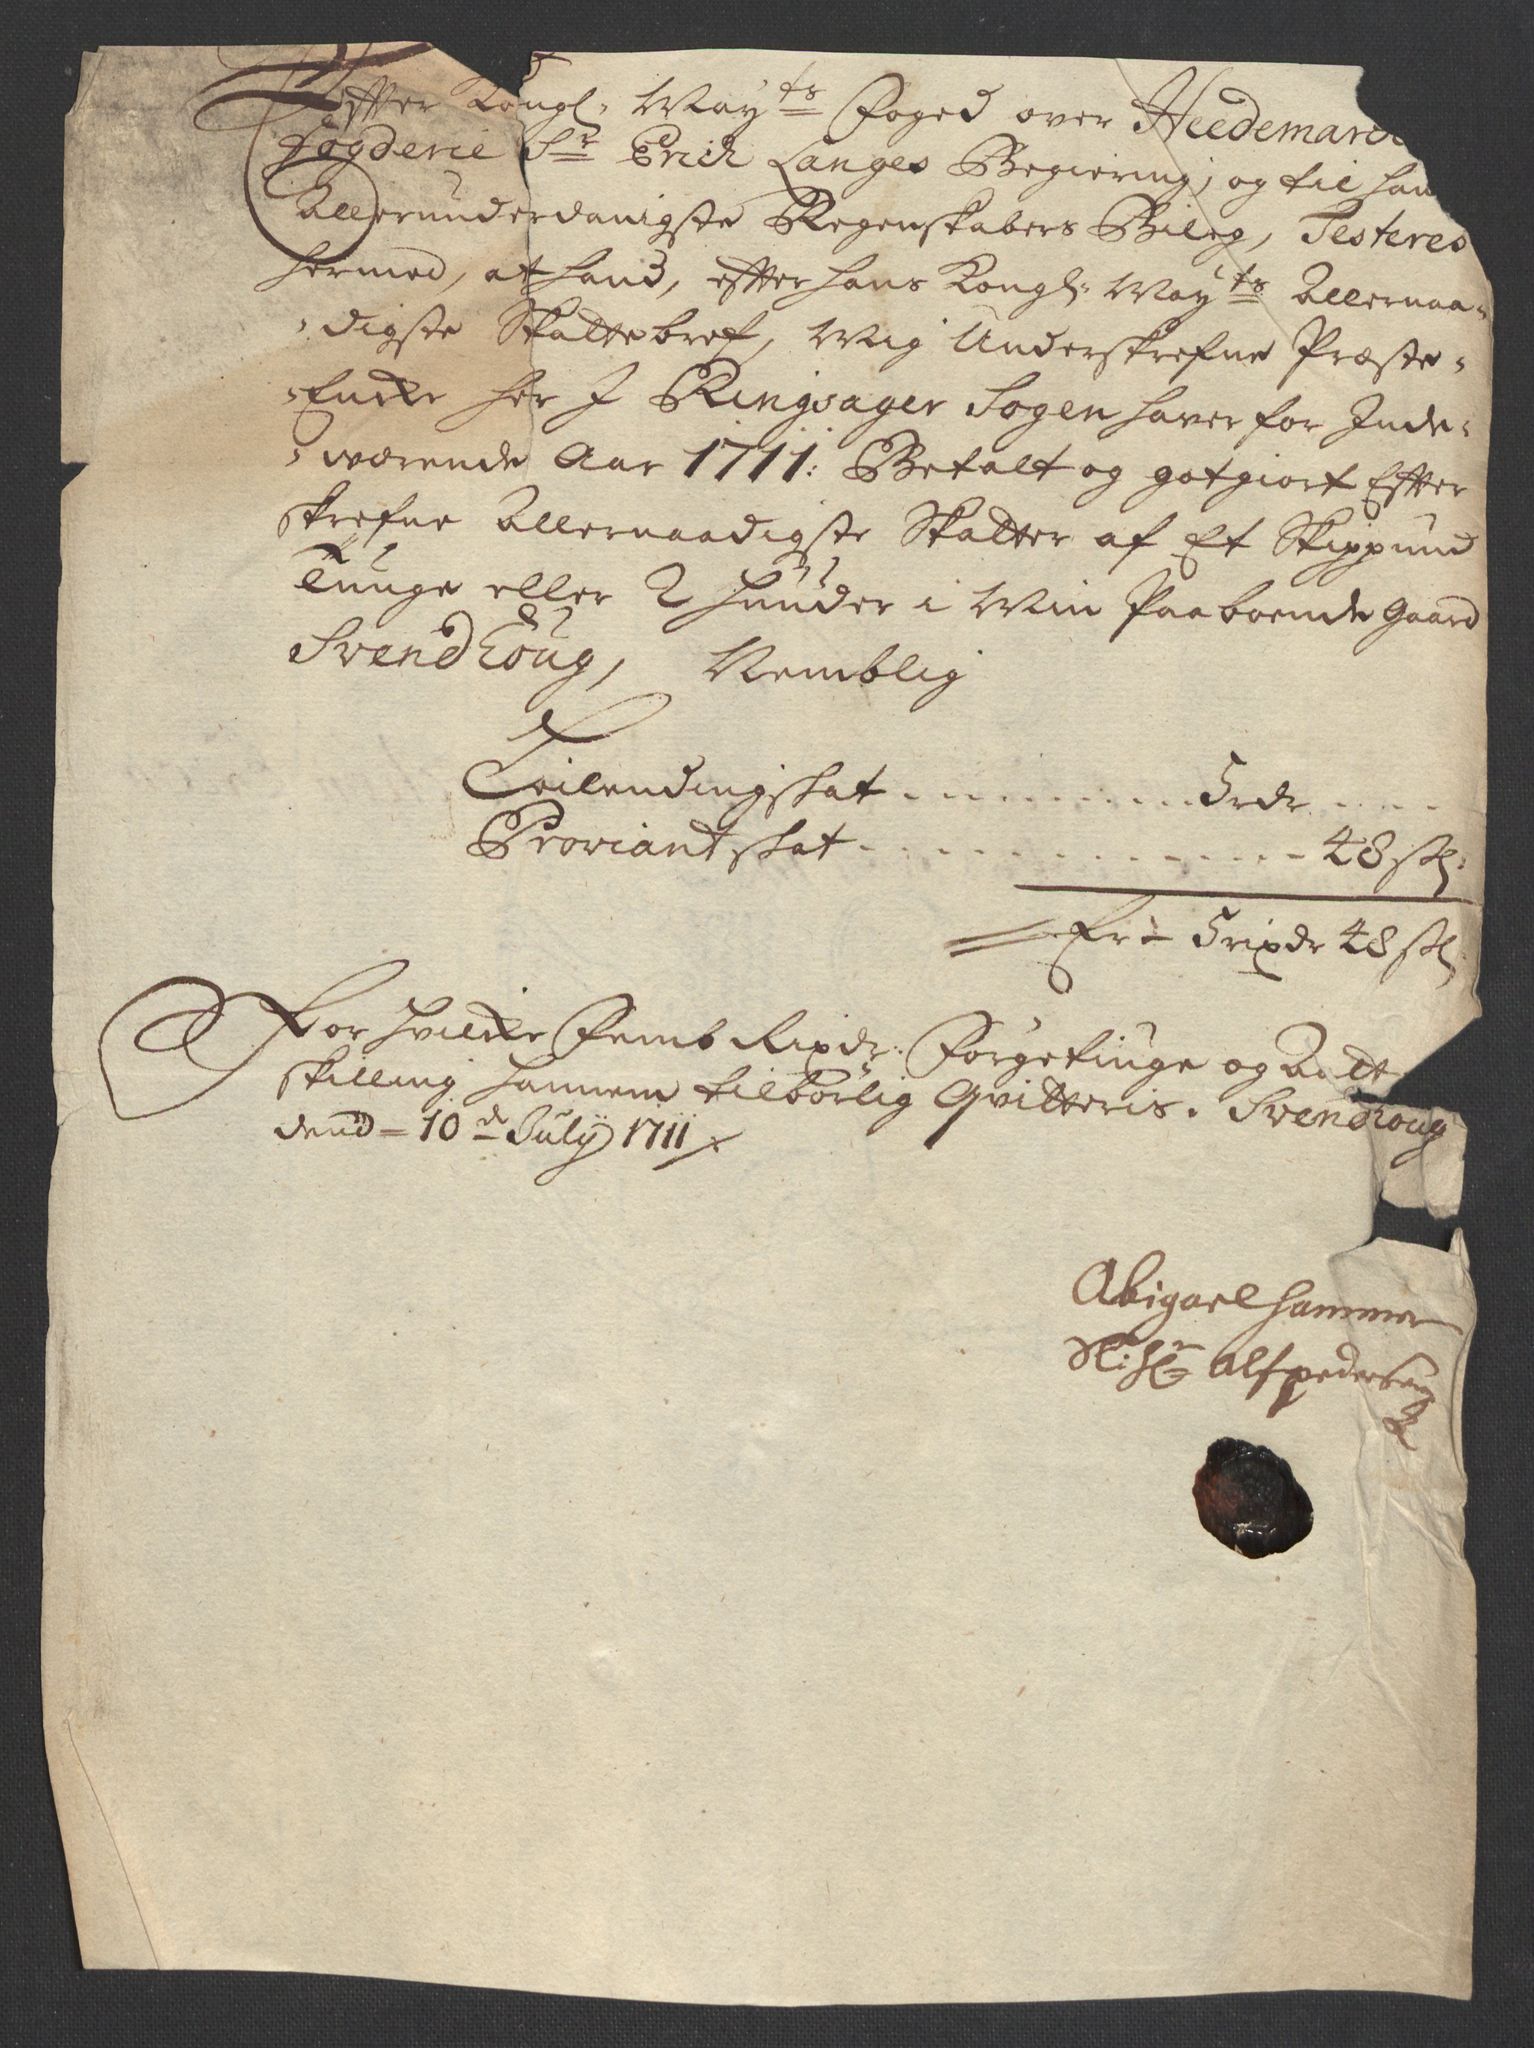 Effter Kongl: May:ts Foged over Heedemarc
Fogderie Sr Erich Langes Begiering, og til han
Allerunderdanigste Regenskabers Bileg, Testeres
hermed, at hand, effter hans Kongl: May:ts Allernaa-
-digste Skattebref, Mig Underskrefne Præste-
-Encke her J Ringsager Sogen haver for Inde-
-wærende Aar 1711: Betalt og gotgiort Effter
skrefne Allernaadigste Skatter af Et Skippund
Tunge eller 2 Huuder i Min Paaboende Gaard
Svendhoug, Nemblig
Leilendingskat 5 rdr
Proviantskat 48 sk:
Er - 5 rixdr 48 sk
For hvilcke Femb Rixdr: Førgetiuge og Aatte
skilling hannem tilbørlig Qvitteris. Svendhoug
dend - 10d July 1711
Abigael Hammer
Sl: Hr Alf Pedersens